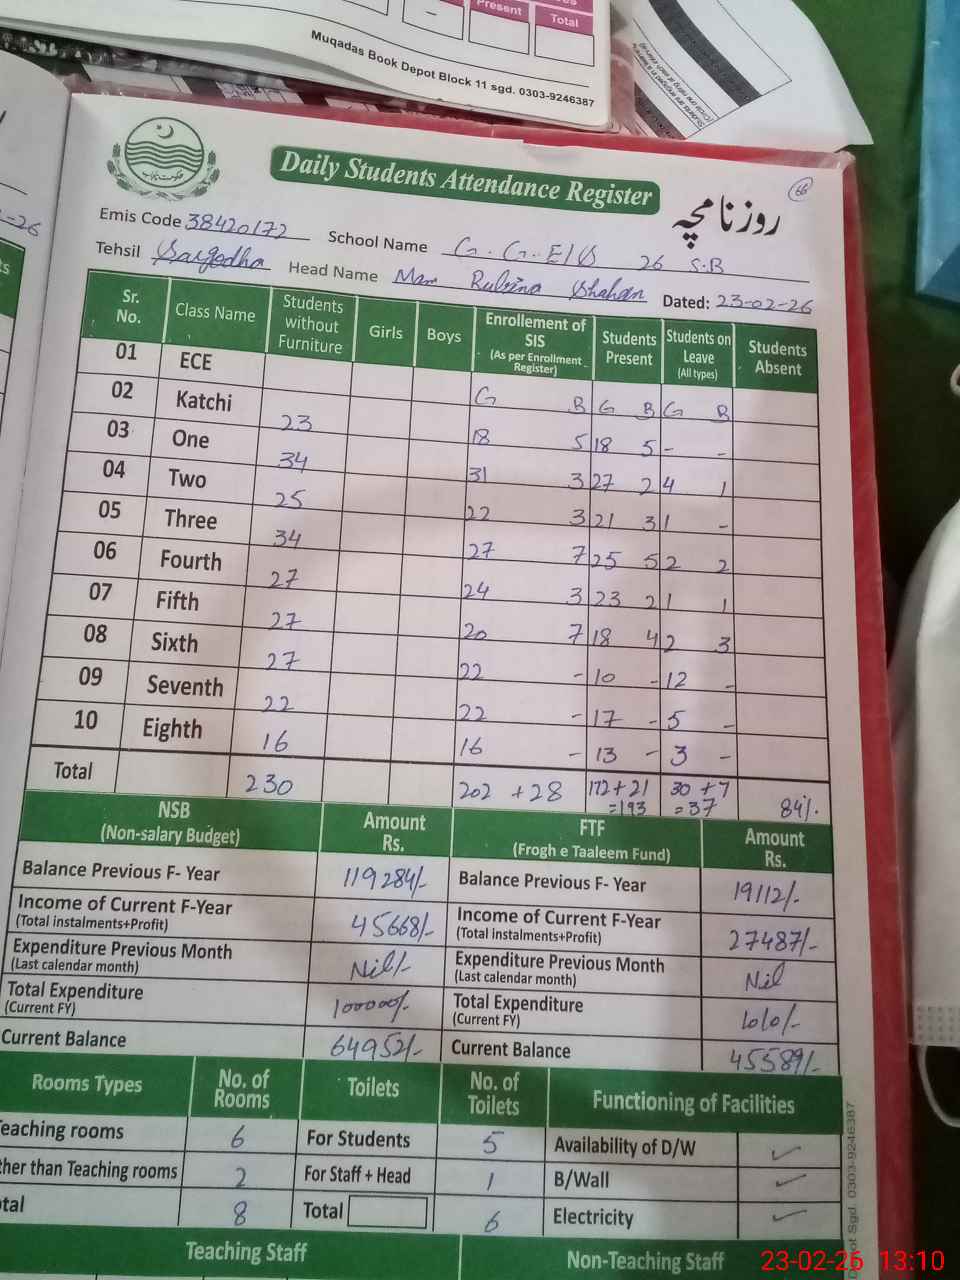 Present
Total
Muqadas Book Depot Block 11 sgd. 0303-9246387
Daily Students Attendance Register
روزنامچہ
66
Emis Code 38420172 School Name G.G.E/S 26 S.B
Tehsil Sargodha Head Name Mam Rubina Shahan Dated: 23-02-26
Sr. No. Class Name Students without Furniture Girls Boys Enrollement of SIS (As per Enrollment Register) Students Present Students on Leave (All types) Students Absent
01 ECE G B G B G B
02 Katchi 23 18 5 18 5 - -
03 One 34 31 3 27 2 4 1
04 Two 25 22 3 21 3 1 -
05 Three 34 27 7 25 5 2 2
06 Fourth 27 24 3 23 2 1 1
07 Fifth 27 20 7 18 4 2 3
08 Sixth 27 22 - 10 - 12 -
09 Seventh 22 22 - 17 - 5 -
10 Eighth 16 16 - 13 - 3 -
Total 230 202 + 28 172+21 =193 30 +7 =37 84%.
NSB (Non-salary Budget) Amount Rs. FTF (Frogh e Taaleem Fund) Amount Rs.
Balance Previous F- Year 119284/- Balance Previous F- Year 19112/-
Income of Current F-Year (Total instalments+Profit) 45668/- Income of Current F-Year (Total instalments+Profit) 27487/-
Expenditure Previous Month (Last calendar month) Nil/- Expenditure Previous Month (Last calendar month) Nil
Total Expenditure (Current FY) 100000/- Total Expenditure (Current FY) 1010/-
Current Balance 64952/- Current Balance 45589/-
Rooms Types No. of Rooms Toilets No. of Toilets Functioning of Facilities
eaching rooms 6 For Students 5 Availability of D/W ✓
ther than Teaching rooms 2 For Staff + Head 1 B/Wall ✓
tal 8 Total 6 Electricity ✓
Teaching Staff Non-Teaching Staff
ot Sgd. 0303-9246387
23-02-26 13:10